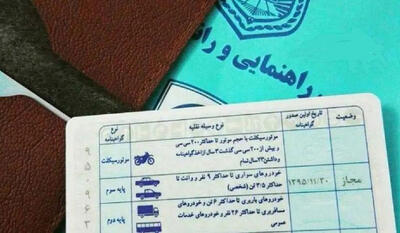 راهنمایی و را
وضعیت
تاریخ اولین صدور گواهینامه
نوع وسیله نقلیه
نوع گواهینامه
موتورسیکلت با حجم موتور تا حداکثر ۲۰۰ سی سی
و بیش از ۲۰۰ سی سی گذشت ۳ سال از اخذ گواهینامه
وداشتن ۲۳ سال تمام
موتورسیکلت
مجاز
۱۳۹۵/۱۱/۳۰
خودروهای سواری تا حداکثر ۹ نفر و وانت تا
حداکثر ۳/۵ تن (شخصی)
پایه سوم
خودروهای باربری تا حداکثر ۶ تن و خودروهای
مسافربری تا حداکثر ۲۶ نفر و خودروهای خدمات
عمومی
پایه دوم